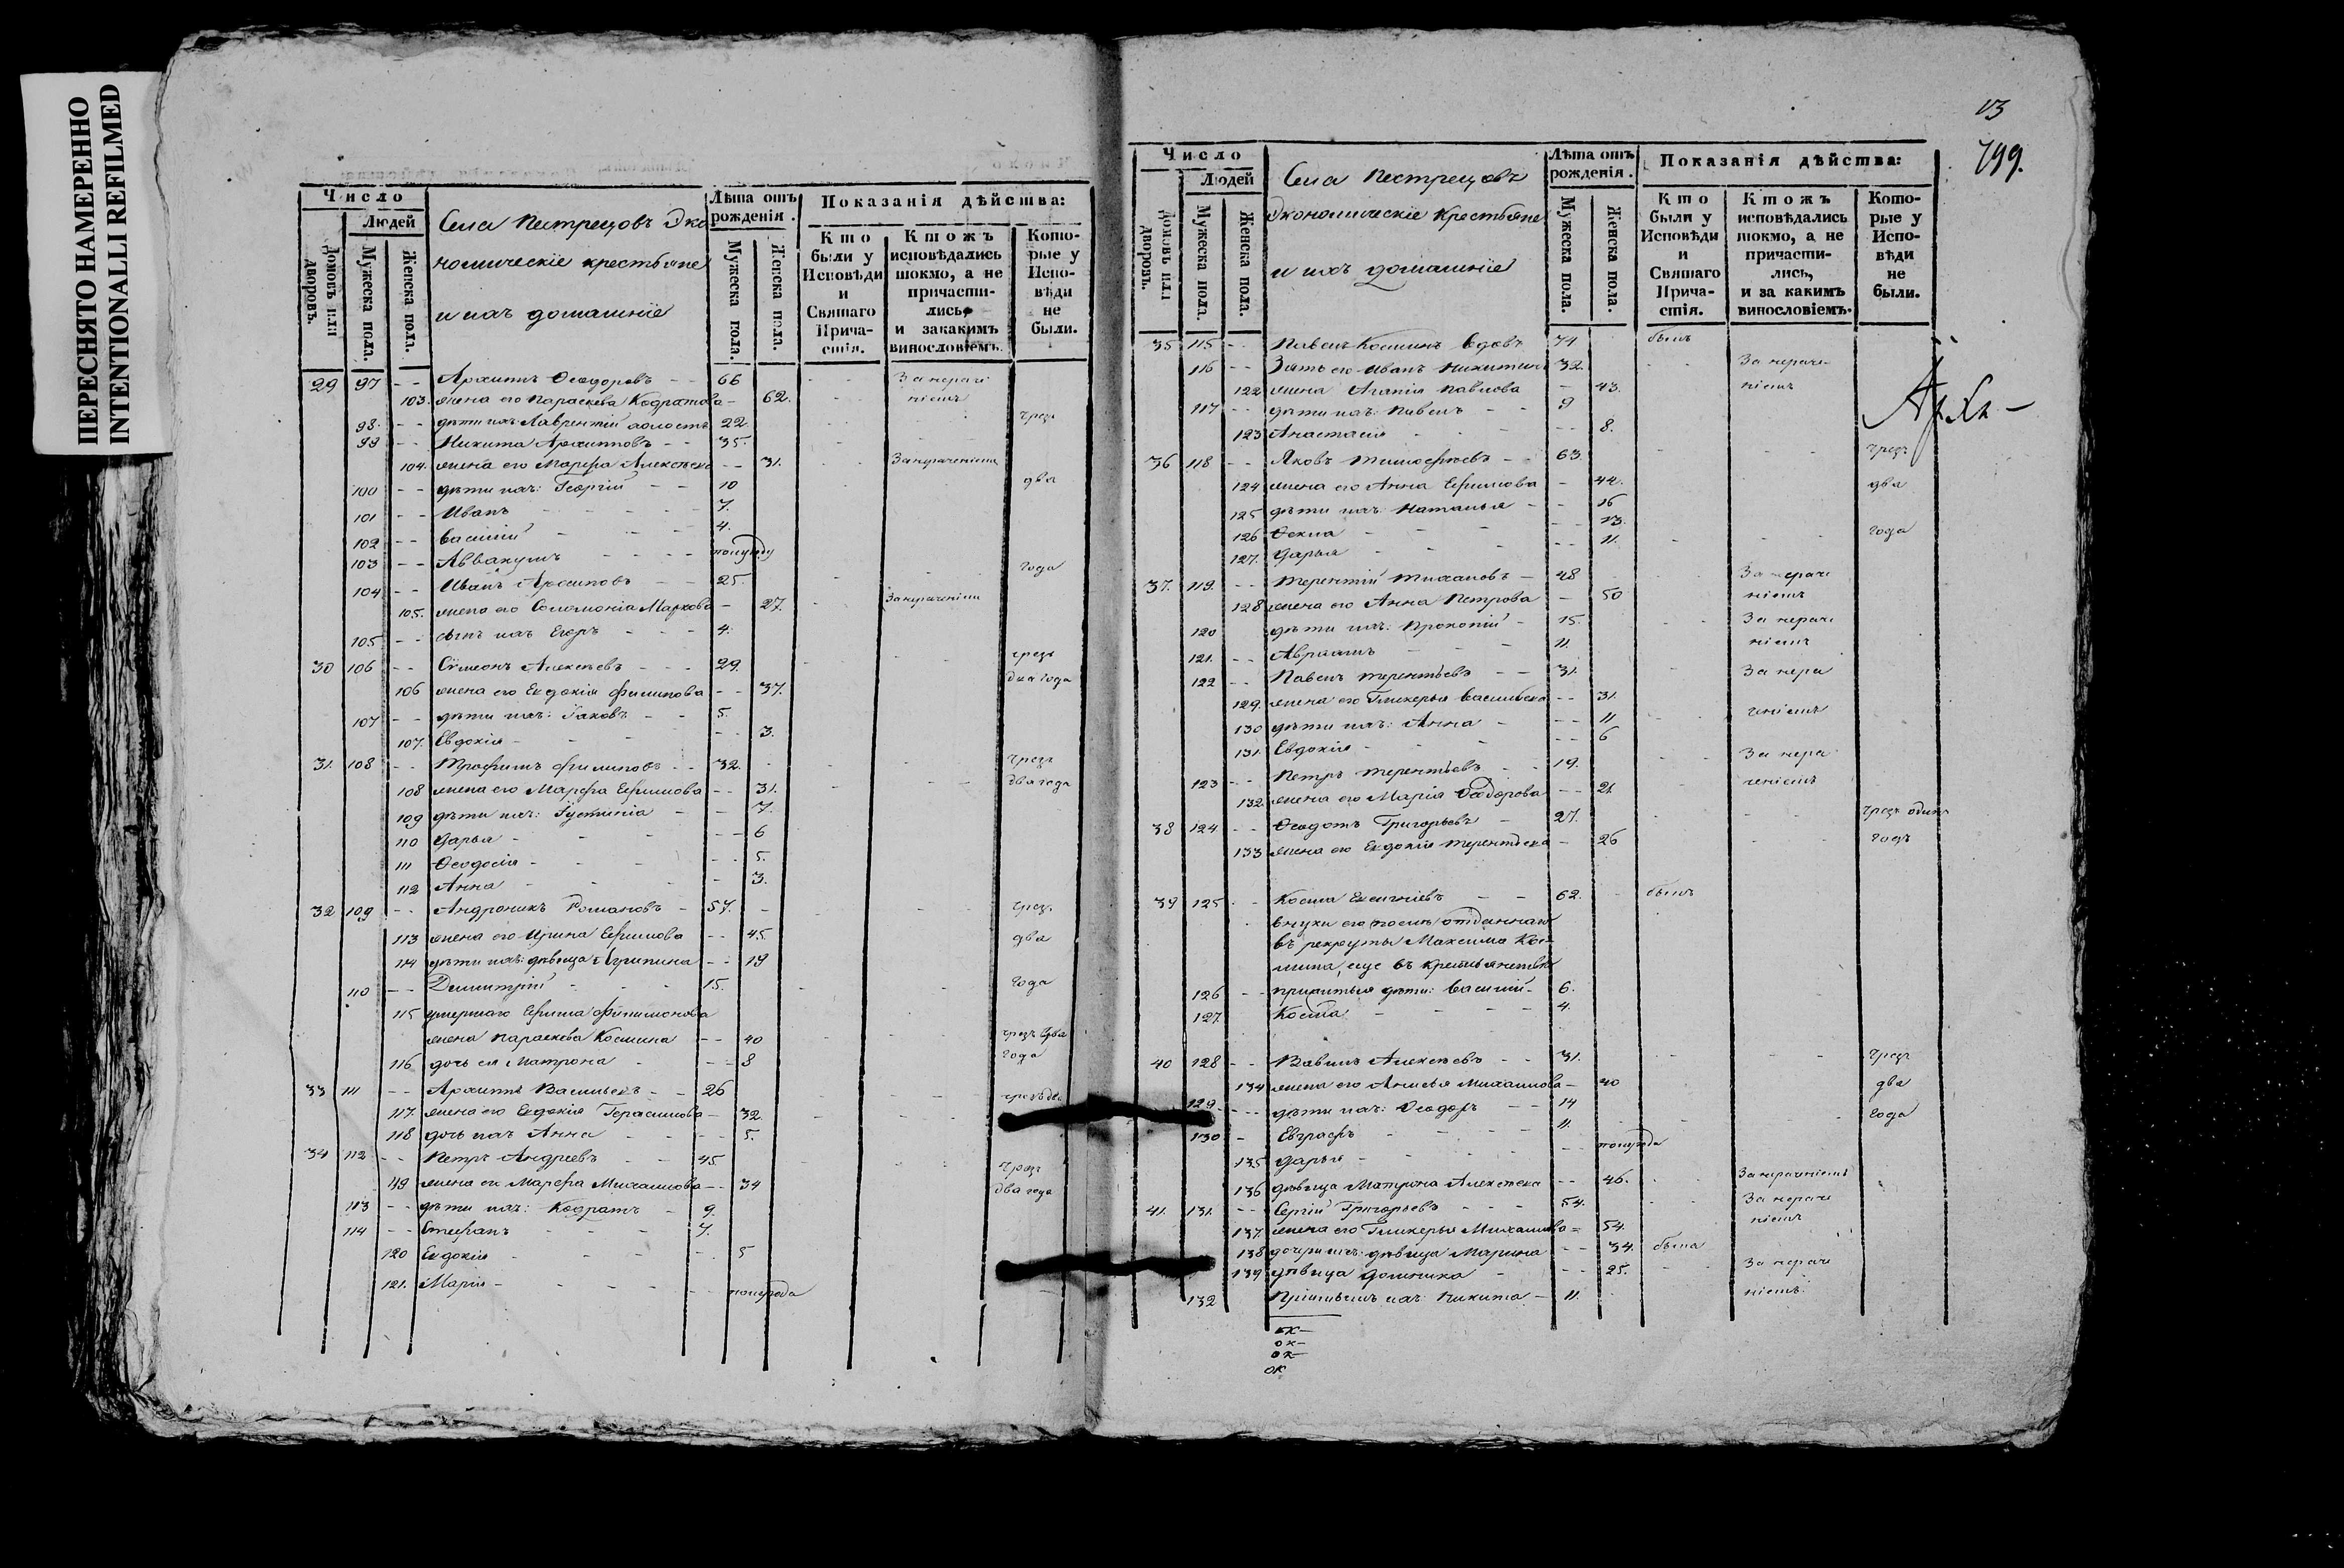 ПЕРЕСНЯТО НАМЕРЕННО
INTENTIONALLI REFILMED
Число
Людей
Домовъ или дворовъ.
Мужеска пола.
Женска пола.
Села Пестрецовъ Эко
номическіе крестьяне
и ихъ домашніе
Лѣта отъ рожденія.
Мужеска пола.
Женска пола.
Показанія дѣйства:
Кто были у Исповѣди и Святаго Прича-стія.
Ктожъ исповѣдались токмо, а не причасти-лись, и закакимъ винословіемъ.
Кото-рые у Испо-вѣди не были.
29 97 - - Архипъ Ѳеодоровъ - - 66 - За нераче
103. жена его Параскева Кодратова - 62. - ніемъ
98. - - дѣти ихъ Лаврентій холостъ 22. чрезъ
99 - - Никита Архиповъ - - 35.
104. жена его Марфа Алексѣева - - 31. За нераченіемъ
100 - - дѣти ихъ: Георгій - - 10 два
101 - - Иванъ - - 7.
102 - - Василій - - 4.
103 - - Аввакумъ - - полугоду
104 - - Иванъ Архиповъ - - 25. года
105. жена его Соломонія Маркова - 27. За нераченіемъ
105 - - сынъ ихъ Егоръ - - 4.
30 106 - - Сѵмеонъ Алексѣевъ - - 29. чрезъ
106 жена его Евдокія Филипова - - 37. два года
107 - - дѣти ихъ: Іаковъ - - 5.
107. Евдокія - - 3.
31. 108 - - Трофимъ Филиповъ - - 32. чрезъ
108 жена его Марфа Ефимова - - 31. два года
109 дѣти ихъ: Іустинія - - 7.
110 Дарья - - 6
111 Ѳеодосія - - 5.
112 Анна - - 3.
32 109 - - Андроникъ Романовъ - 57. - чрезъ
113 жена его Ирина Ефимова - - 45. два
114 дѣти ихъ: дѣвица Агрипина - - 19
110 - - Димитрій - - 15. года
115 умершаго Ефима Филимонова
жена Параскева Космина - - 40 чрезъ два
116 дочь ея Матрона - - 8 года
33 111 - - Архипъ Васильевъ - - 26
117. жена его Евдокія Герасимова - 32. чрезъ два
118 дочь ихъ Анна - - 5.
34 112 - - Петръ Андреевъ - - 45. чрезъ
119 жена его Марфа Михаилова - - 34 два года
113 - - дѣти ихъ: Кодратъ - 9.
114 - - Стефанъ - - 7.
120 Евдокія - - 5
121. Марія - - полугода
13
799.
Число
Людей
Домовъ или дворовъ.
Мужеска пола.
Женска пола.
Села Пестрецовъ
Экономическіе Крестьяне
и ихъ домашніе
Лѣта отъ рожденія.
Мужеска пола.
Женска пола.
Показанія дѣйства:
Кто были у Исповѣди и Святаго Прича-стія.
Ктожъ исповѣдались токмо, а не причасти-лись, и за какимъ винословіемъ.
Кото-рые у Испо-вѣди не были.
35 115 - - Павелъ Косминъ вдовъ 74 былъ
116 - - Зять его Иванъ Никитинъ 32. За нераче
122 жена Агапія Павлова - 43. ніемъ
117 - - дѣти ихъ: Павелъ - - 9
123 Анастасія - - 8.
36 118 - - Яковъ Тимофѣевъ - 63. чрезъ
124 жена его Анна Ефимова - 44. два
125 дѣти ихъ: Наталья - 16
126 Ѳекла - - 13. года
127. Дарья - - 11.
37. 119. - - Терентій Михаиловъ - 48 За нераче
128 жена его Анна Петрова - 50 ніемъ
120 дѣти ихъ: Прокопій - 15. За нераче
121. - - Авраамъ - 11. ніемъ
122 - - Павелъ Терентьевъ - - 31. За нера
129. жена его Гликерья Васильева - - 31.
130 дѣти ихъ: Анна - - - 11 ченіемъ
131. Евдокія - - 6
123 - - Петръ Терентьевъ - - 19. За нера
132. жена его Марія Ѳадорова - - 21. ченіемъ
38 124 - - Ѳеодотъ Григорьевъ - 27. чрезъ одинъ
133 жена его Евдокія Терентьева - 26 годъ
39 125 - - Косма Евсигніевъ - - 62. былъ
внуки его послѣ отданнаго
въ рекруты Максима Кос-
мина, еще въ крестьянствѣ
126 - - прижитыя дѣти: Василій - 6.
127. Косма - - 4.
40 128 - - Вавилъ Алексѣевъ - - 31. чрезъ
134 жена его Анисья Михаилова - 40 два
129 - - дѣти ихъ: Ѳеодоръ - - 14
130 - Евграфъ - - 11. года
135 Дарья - - полугода
136 дѣвица Матрона Алексѣева - - 46. За нераченіемъ
41. 131. - - Сергій Григорьевъ - - 54. За нераче
137. жена его Гликерья Михаилова - 54. ніемъ
138 дочери ихъ: дѣвица Марина - - 34. была
139 дѣвица Домника - - 25. За нераче
132 Пріимышъ ихъ: Никита - 11. ніемъ
ок-
ок-
ок-
ок